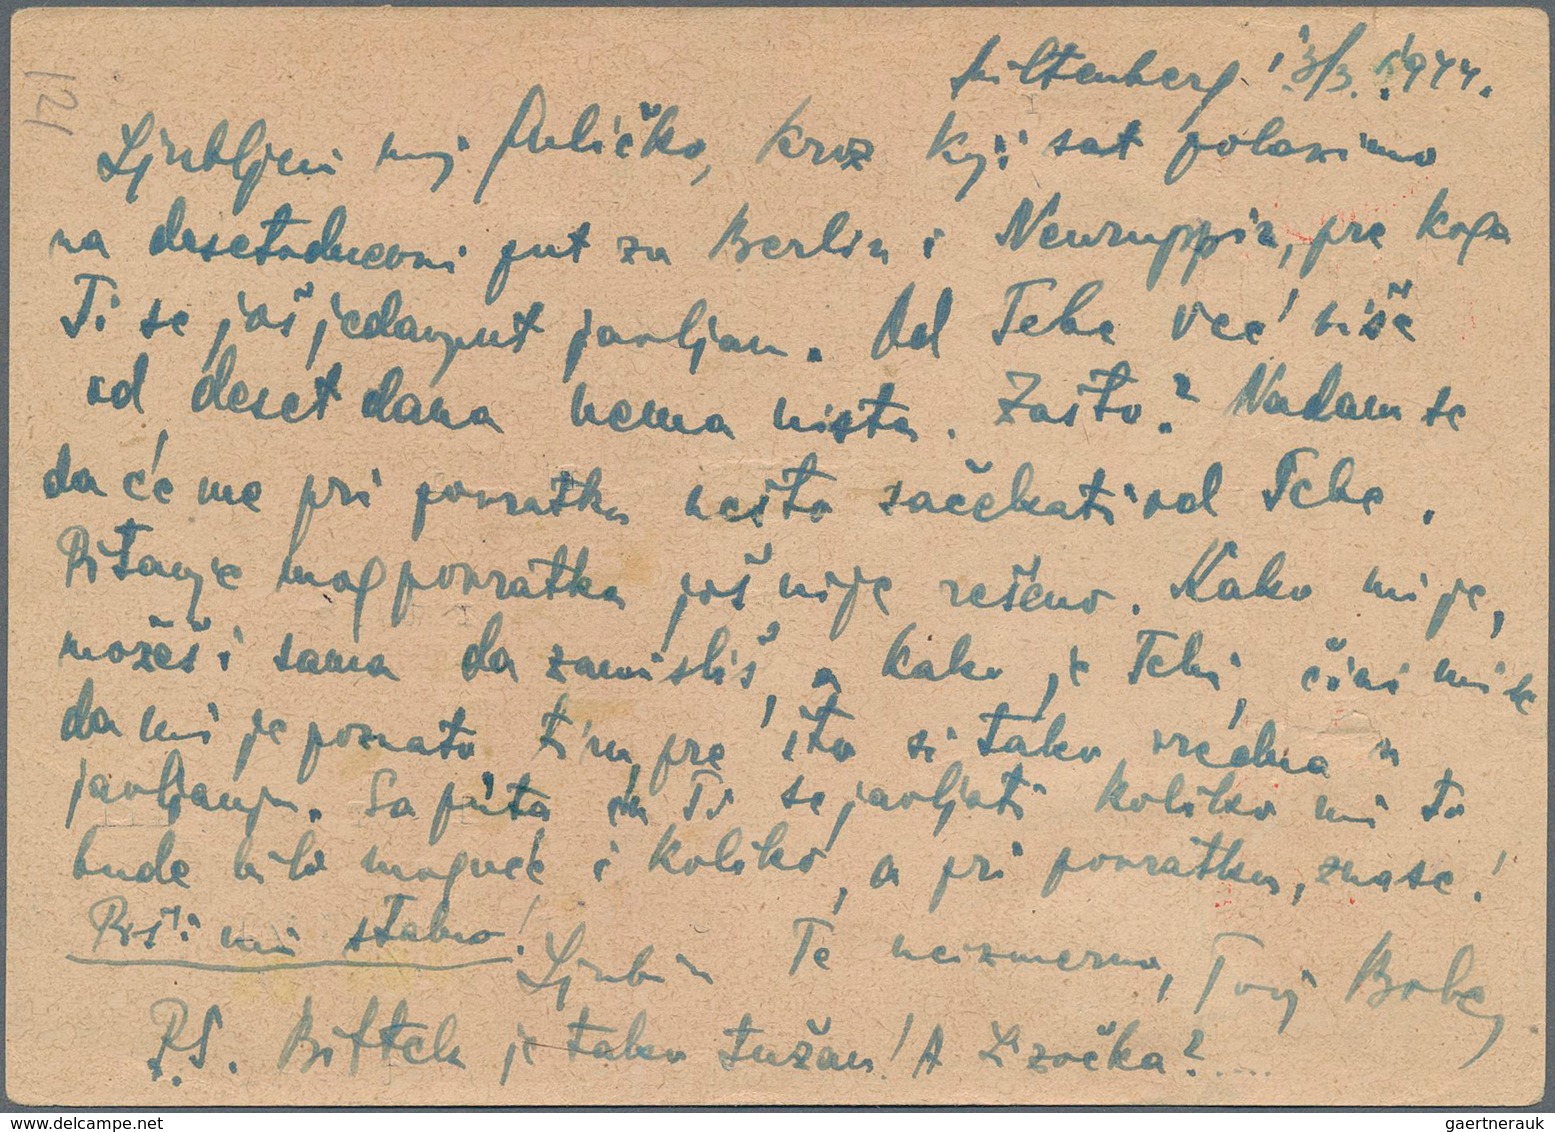 Miltenberg 3/3. 1944.
121
Ljubljeni moj, kroz koji sat polazimo
na desetodnevni put za Berlin i Neuruppin, pre koga
Ti se još jedanput javljam. Od Tebe već više
od deset dana nema ništa. Zašto? Nadam se
da će me pri povratku nešto sačekati od Tebe.
Pitanje mog povratka još nije rešeno. Kako mi je,
možeš i sama da zamisliš, a kako je Tebi, čini mi se
da mi je poznato tim pre što si tako vredna u
javljanju. Sa puta ću Ti se javljati koliko mi to
bude bilo moguće i koliko, a pri povratku, zna se!
Piši mi stalno!
Ljubi Te neizmerno, Tvoj Boba
P.S. Biftek je tako tužan! A Zočka?....
gaertnerauk // www.delcampe.net